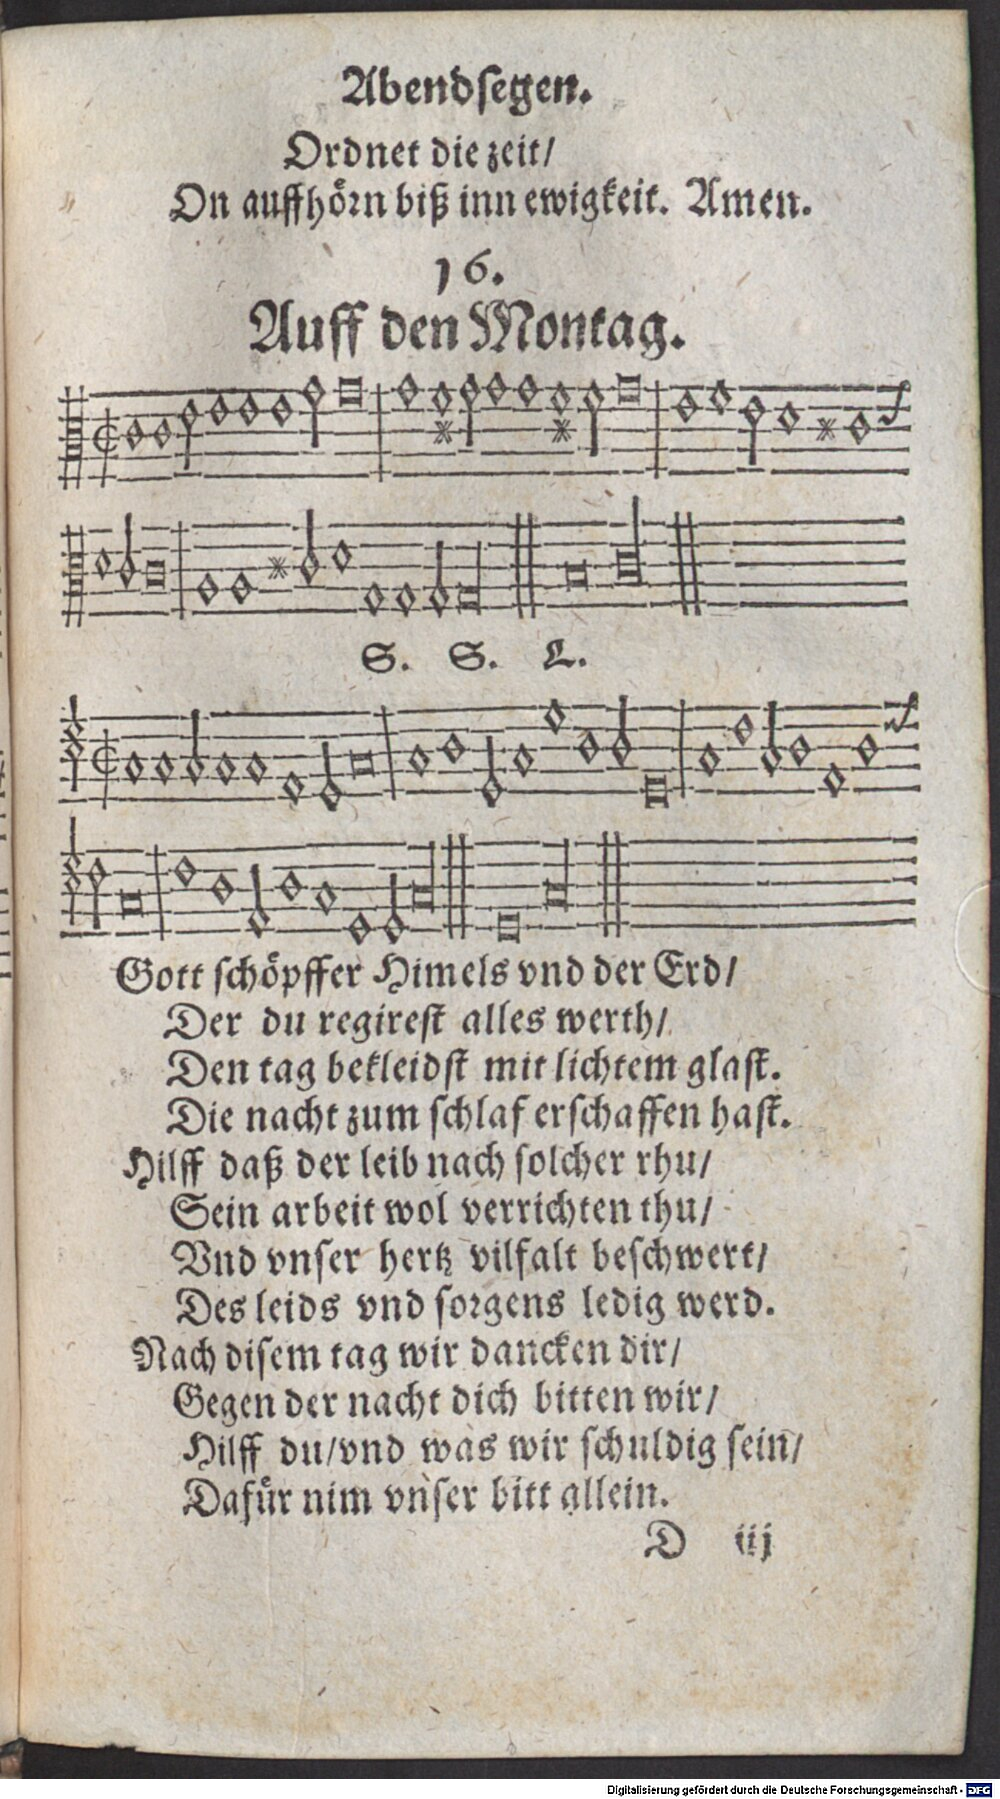 Abendsegen.
Ordnet die zeit/
On auffhörn biß inn ewigkeit. Amen.
16.
Auff den Montag.
S. S. L.
Gott schöpffer Himels vnd der Erd/
Der du regirest alles werth/
Den tag bekleidst mit lichtem glast.
Die nacht zum schlaf erschaffen hast.
Hilff daß der leib nach solcher rhu/
Sein arbeit wol verrichten thu/
Vnd vnser hertz vilfalt beschwert/
Des leids vnd sorgens ledig werd.
Nach disem tag wir dancken dir/
Gegen der nacht dich bitten wir/
Hilff du/vnd was wir schuldig sein/
Dafür nim vnser bitt allein.
D iij
Digitalisierung gefördert durch die Deutsche Forschungsgemeinschaft - DFG